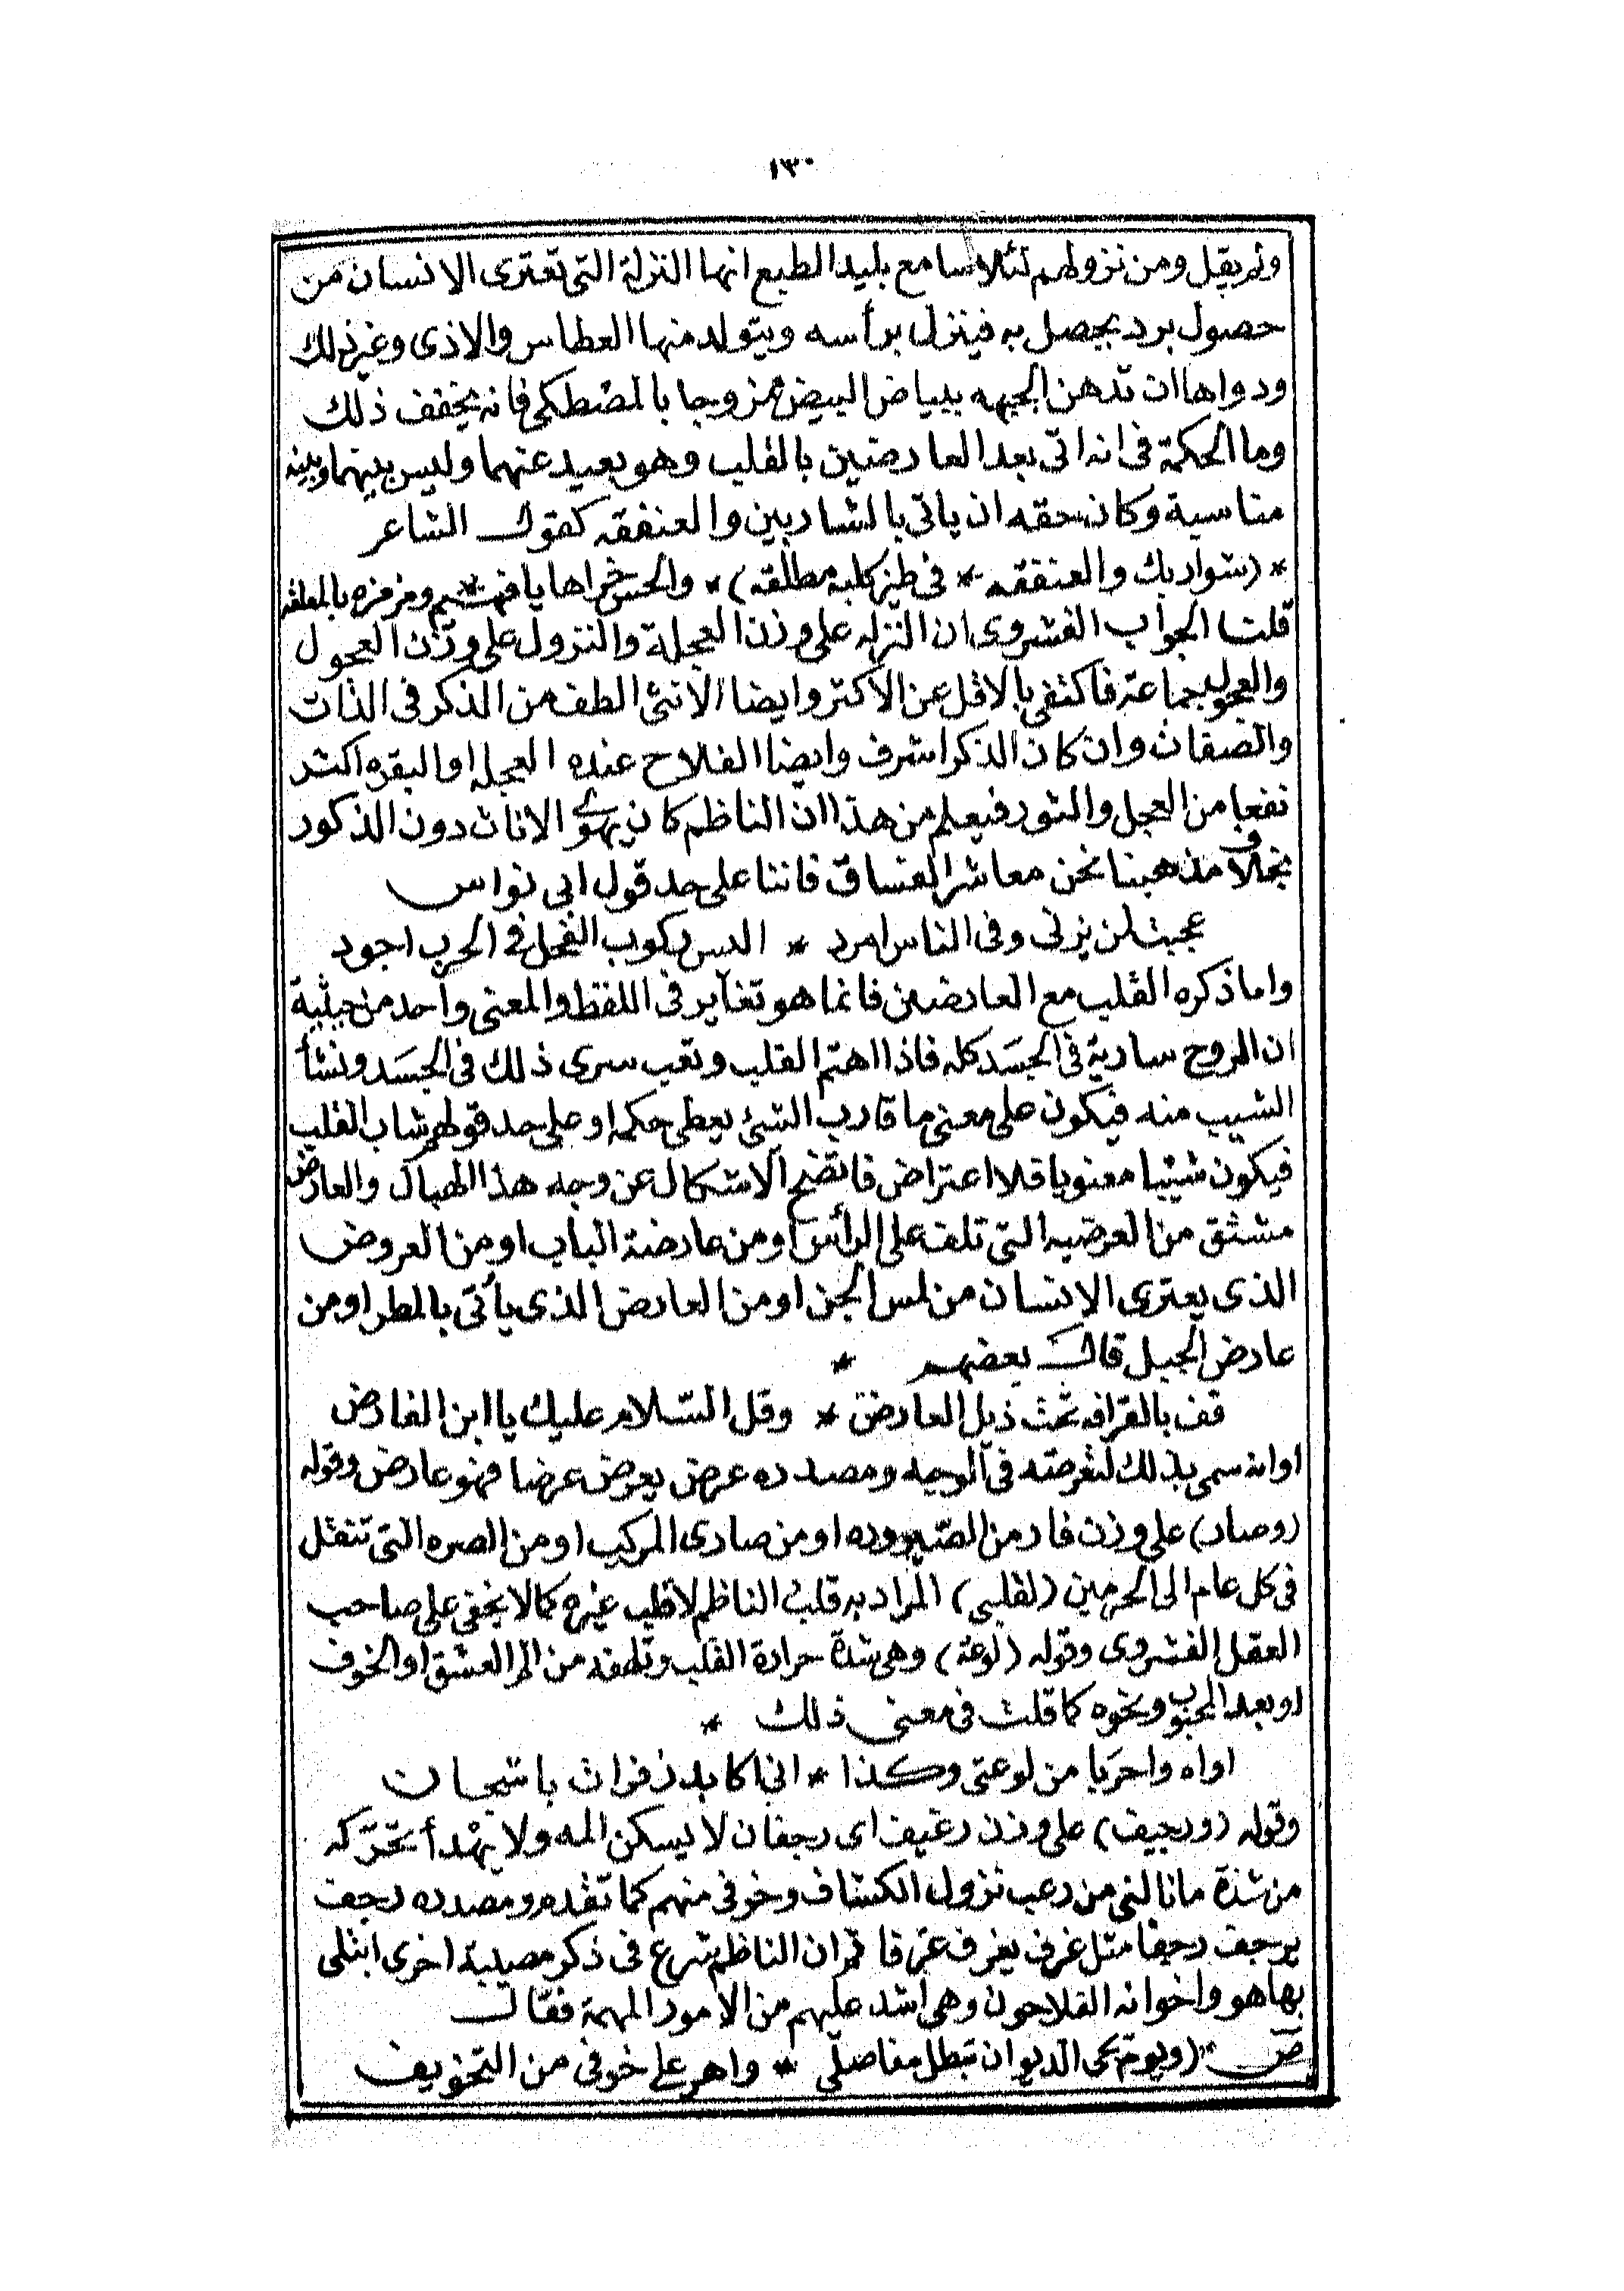 ١٣٠
ولم يقل ومن نزولهم لئلا سامع بليد الطبع انها النزلة التى تعترى الانسان من
حصول برد يحصل به فينزل برأسه ويتولد منها العطاس والاذى وغير ذلك
ودواها ان تدهن الجبهه ببياض البيض ممزوجا بالمصطكى فانه يخفف ذلك
وما الحكمة فى انه اتى بعد العارضين بالقلب وهو بعيد عنهما وليس بينهما وبينه
مناسبة وكان حقه ان ياتى بالشاربين والعنفقه كقول الشاعر
* (شواربك والعنفقه * فى طيز كلبة مطلقه) * والحس خراها يا فهيم ومزمزه بالمعلقه
قلت الجواب الفشروى ان النزله على وزن العجلة والنزول على وزن العجول
والعجول جماعة فاكتفى بالاقل عن الاكثر وايضا الانثى الطف من الذكر فى الذات
والصفات وان كان الذكر اشرف وايضا الفلاح عنده العجله او البقره اكثر
نفعا من العجل والثور فيعلم من هذا ان الناظم كان يهوى الاناث دون الذكور
بخلاف مذهبنا نحن معاشر الفساق فاننا على حد قول ابى نواس
عجبت لمن يزنى وفى الناس امرد * اليس ركوب الفحل فى الحرب اجود
واما ذكره القلب مع العارضين فانما هو تغاير فى اللفظ والمعنى واحد من حيثية
ان الروح سارية فى الجسَد كله فاذا اهتم القلب وتعب سرى ذلك فى الجسَد ونشأ
الشيب منه فيكون على معنى ما قارب الشئ يعطى حكمه او على حد قولهم شاب القلب
فيكون شيبا معنويا فلا اعتراض فاتضح الاشكال عن وجه هذا الهبال والعارض
مشتق من العرضيه التى تلف على الرأس او من عارضة الباب او من العروض
الذى يعترى الانسان من لمس الجن او من العارض الذى يأتى بالمطر او من
عارض الجبل قال بعضهم *
قف بالقرافه تحت ذيل العارض * وقل السّلام عليك يا ابن الفارض
او انه سمى بذلك لتعرضه فى الوجه ومصدره عرض يعرض عرضا فهو عارض وقوله
(وصار) على وزن فار من الصّيروره او من صارى المركب او من الصره التى تنقل
فى كل عام الى الحرمين (لقلبى) المراد به قلب الناظم لا قلب غيره كما لا يخفى على صاحب
العقل الفشروى وقوله (لوعة) وهى شدة حرارة القلب وتلهفه من الم العشق او الخوف
او بعد المحبوب ونحوه كما قلت فى معنى ذلك *
اواه واحرَبا من لوعتى وكذا * انى اكابد زفرات باشجان
وقوله (ورجيف) على وزن رغيف اى رجفان لا يسكن المه ولا يهْدأ تحرّكه
من شدة ما نالنى من رعب نزول الكشاف وخوفى منهم كما تقدم ومصدره رجف
يرجف رجفا مثل غرف يغرف غرفا ثم ان الناظم شرع فى ذكر مصيبة اخرى ابتلى
بها هو واخوانه الفلاحون وهى اشد عليهم من الامور المهمة فقال
ص (ويوم يجى الديوان تبطل مفاصلى * واهر على خوفى من التخويف